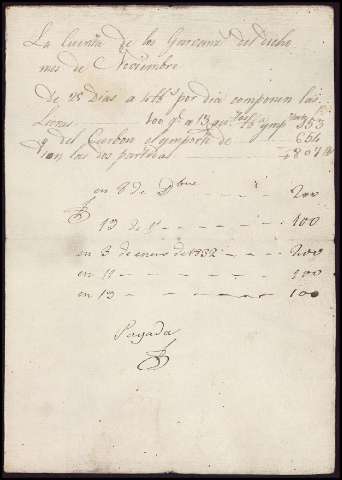 La Cuenta de los Garvanz.s del dicho
mes de Noviembre
De 25 Dias a 4 lb.s por dia componen las
100 a 13 153
y del Carbon el ymporte de 654
son las dos partidas 807
en 8 de Dbre 200
13 de id. 100
en 3 de enero de 1832 200
en 11 100
en 13 100
Pagada